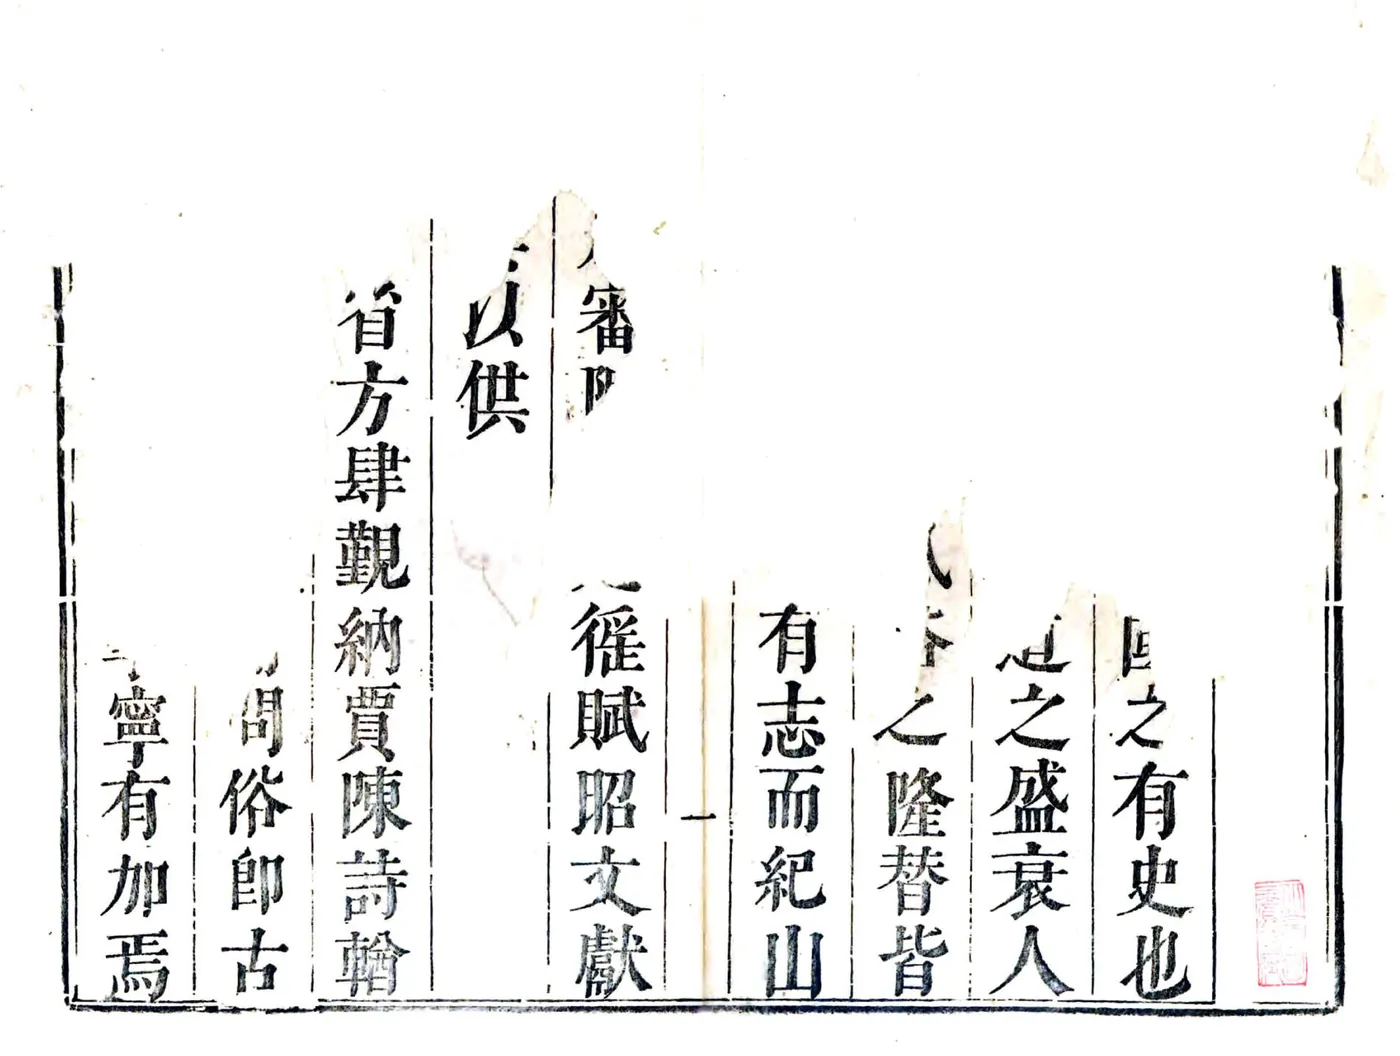 國之有史也
道之盛衰人
之隆替皆
有志而紀山
審
徭賦昭文獻
以供
省方肆覲納賈陳詩輶
問俗卽古
寧有加焉